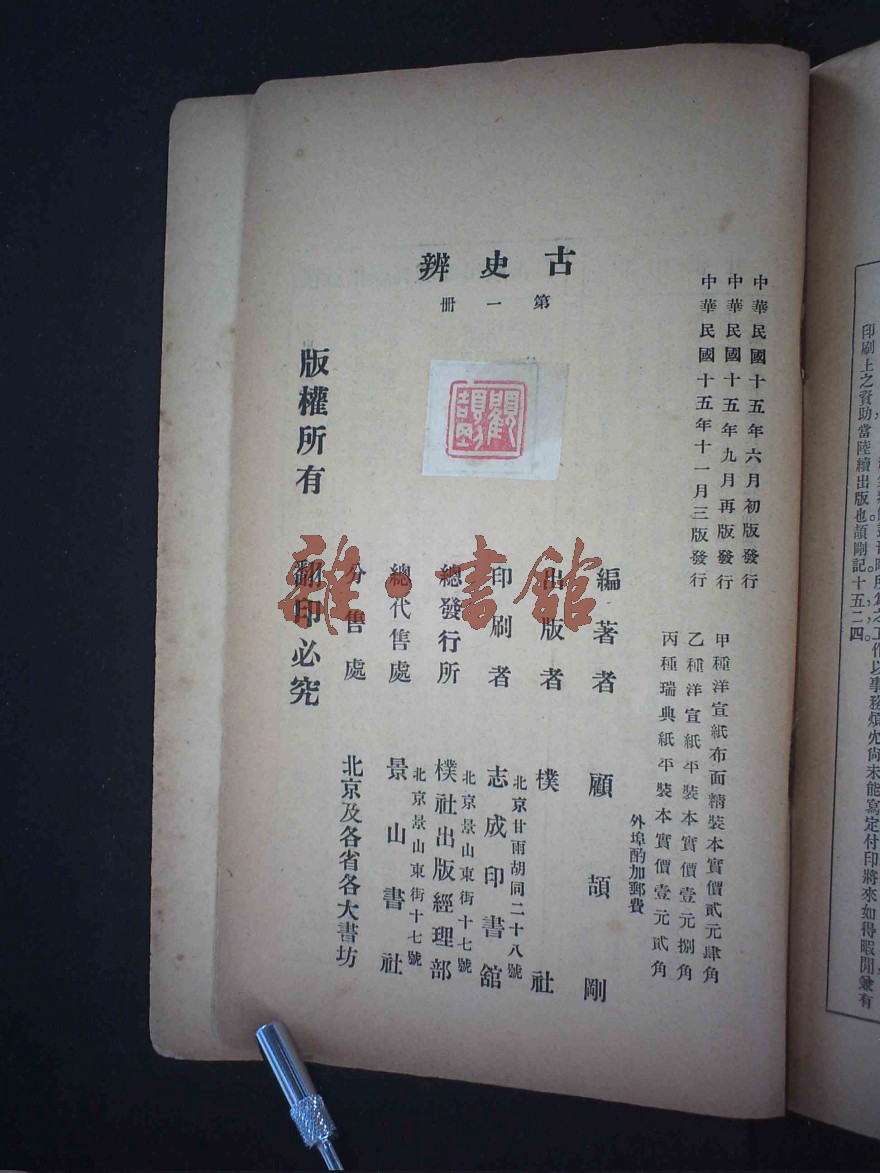 印刷上之資助當陸續出版也頡剛記十五二四
作以事務煩冗尙未能寫定付印將來如得暇閒兼有
中華民國十五年六月初版發行
中華民國十五年九月再版發行
中華民國十五年十一月三版發行
甲種洋宣紙布面精裝本實價貳元肆角
乙種洋宣紙平裝本實價壹元捌角
丙種瑞典紙平裝本實價壹元貳角
外埠酌加郵費
古史辨
第一冊
編著者 顧頡剛
出版者 樸社
北京甘雨胡同二十八號
印刷者 志成印書館
北京景山東街十七號
總發行所 樸社出版經理部
北京景山東街十七號
總代售處 景山書社
分售處 北京及各省各大書坊
版權所有 翻印必究
雜·書館